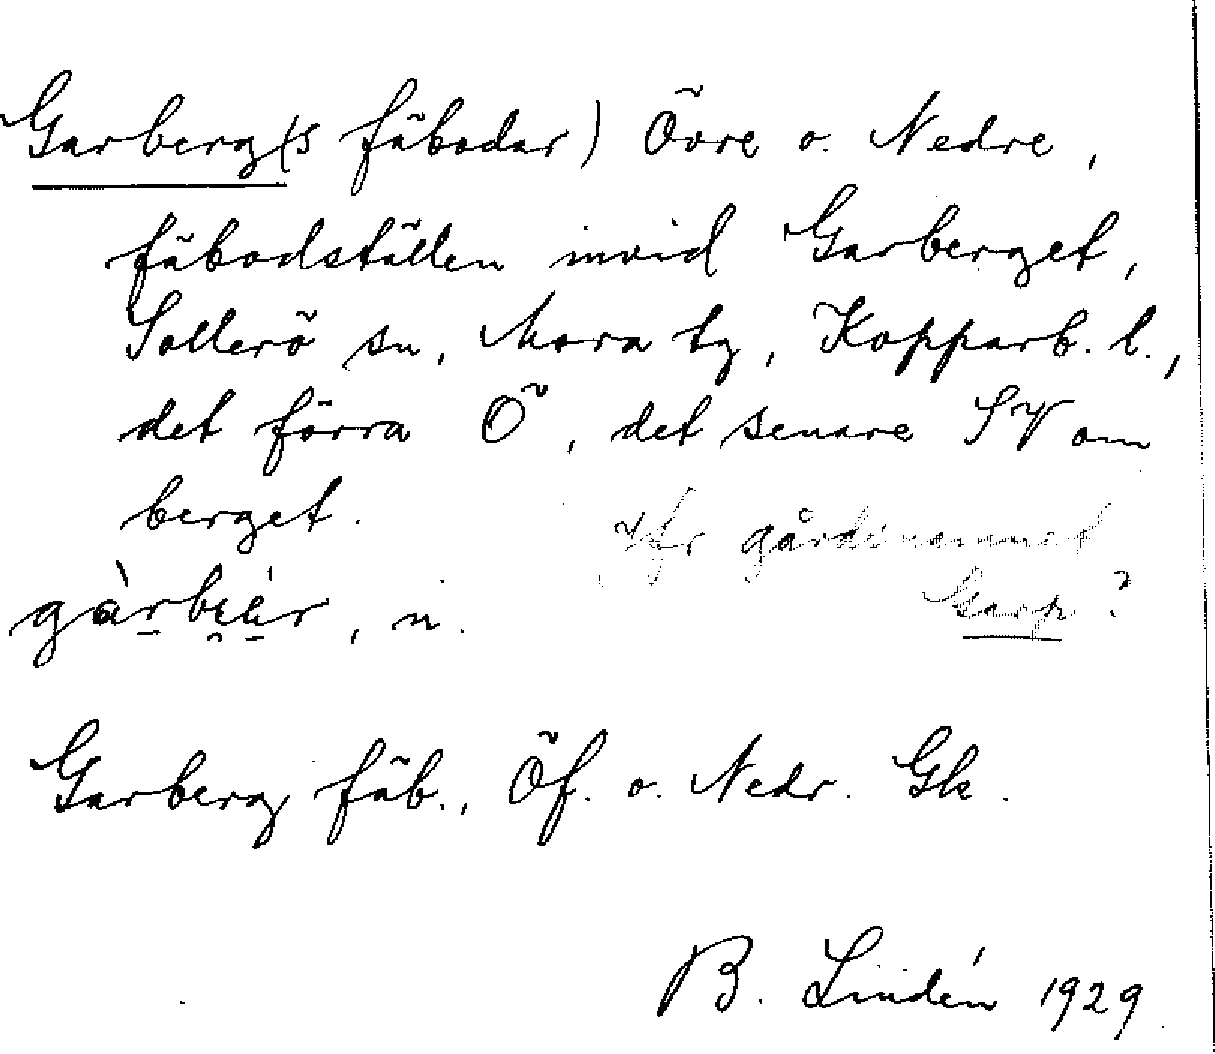 Garberg(s fäbodar) Övre o. Nedre,
fäbodställen invid Garberget,
Sollerö sn, Mora tg, Kopparb. l.,
det förra Ö, det senare SV om
berget.
Jfr gårdsnamnet
Garp?
gàrbi̯ár, n.
Garberg fäb., Öf. o. Nedr. Gk.
B. Lindén 1929